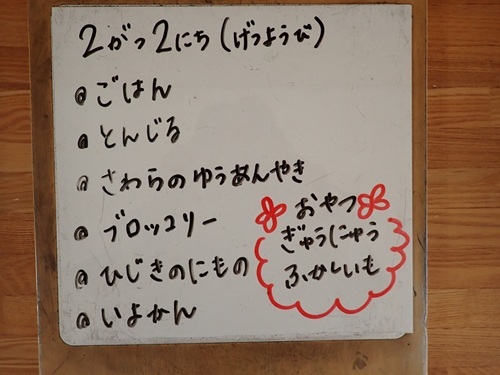 2がつ2にち(げつようび)
ごはん
とんじる
さわらのゆうあんやき
ブロッコリー
ひじきのにもの
いよかん
おやつ
ぎゅうにゅう
ふかしいも